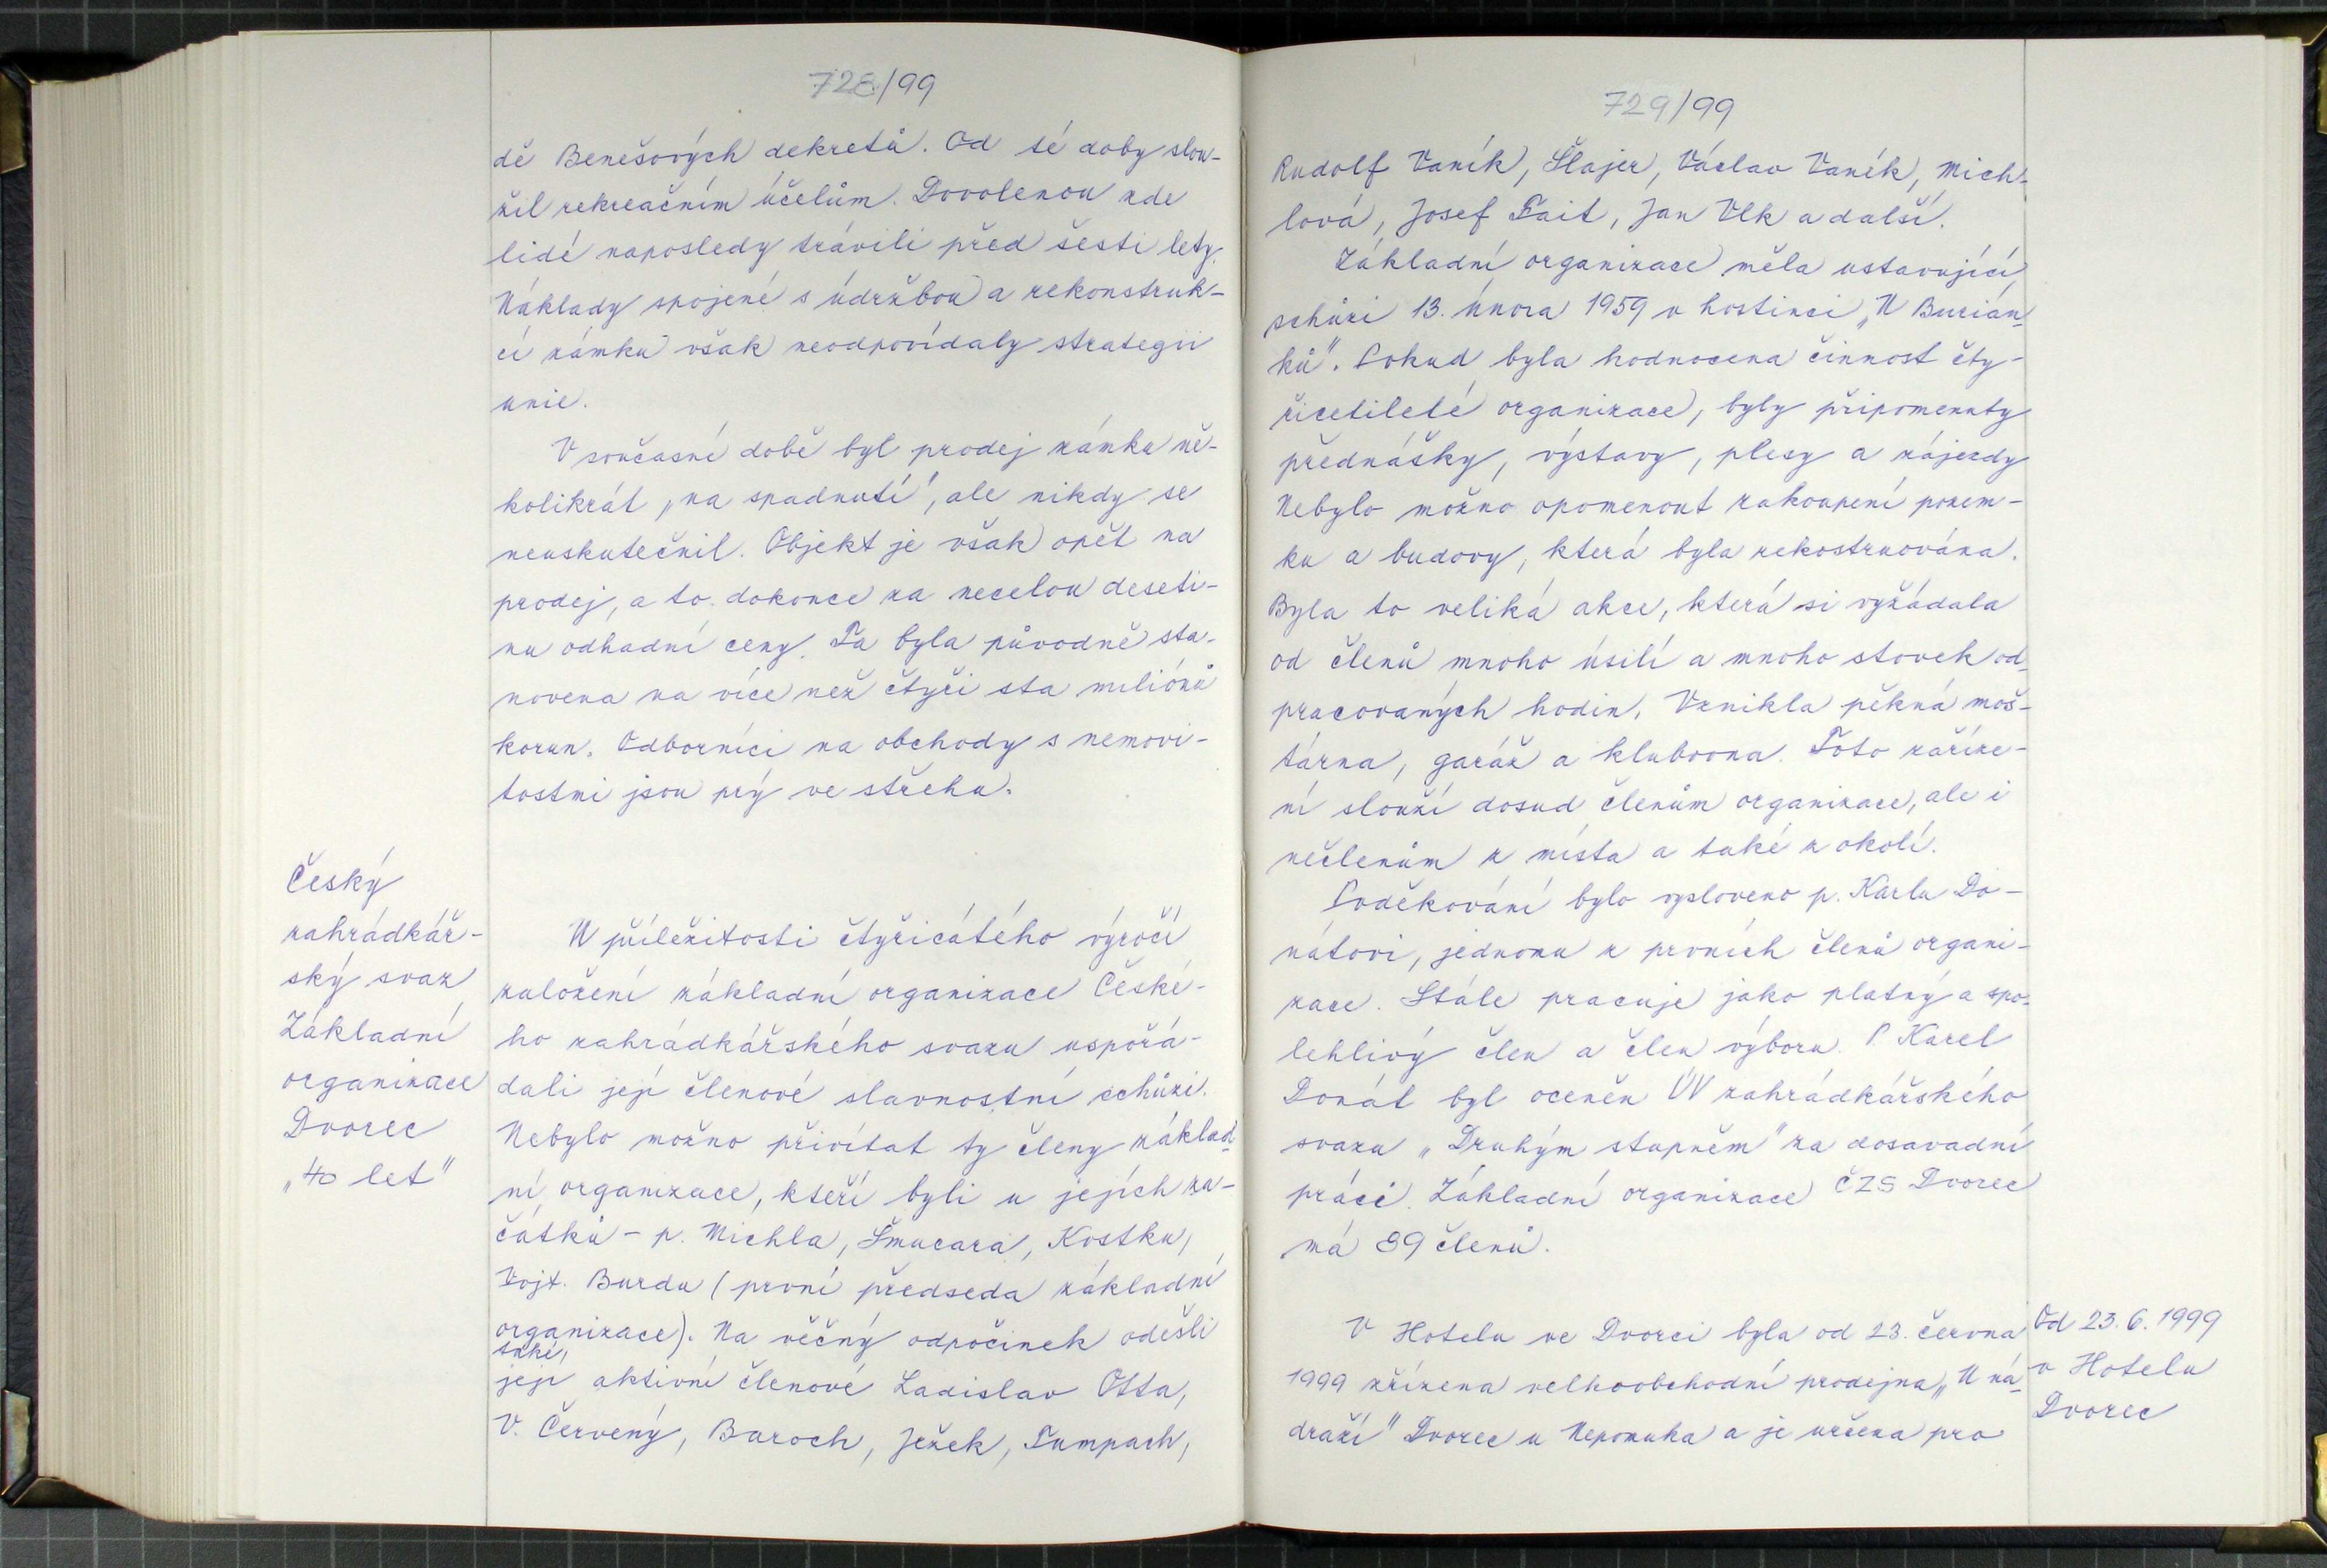 728/99
dě Benešových dekretů. Od té doby slou-
žil rekreačním účelům. Dovolenou zde
lidé naposledy trávili před šesti lety.
Náklady spojené s údržbou a rekonstruk-
cí zámku však neodpovídaly strategii
unie.
V současné době byl prodej zámku ně-
kolikrát „na spadnutí", ale nikdy se
neuskutečnil. Objekt je však opět na
prodej, a to dokonce za necelou deseti-
nu odhadní ceny. Ta byla původně sta-
novena na více než čtyři sta miliónů
korun. Odborníci na obchody s nemovi-
tostmi jsou prý ve střehu.
Český
zahrádkář-
ský svaz
Základní
organizace
Dvorec
„40 let"
U příležitosti čtyřicátého výročí
založení základní organizace České-
ho zahrádkářského svazu uspořá-
dali její členové slavnostní schůzi.
Nebylo možno přivítat ty členy základ-
ní organizace, kteří byli u jejích za-
čátků - p. Michla, Šmucara, Kostku,
Vojt. Burdu (první předseda základní
organizace). Na věčný odpočinek odešli
také
její aktivní členové Ladislav Otta,
V. Červený, Baroch, Ježek, Tumpach,
729/99
Rudolf Vaník, Šlajer, Václav Vaník, Mich-
lová, Josef Tait, Jan Vlk a další.
Základní organizace měla ustavující
schůzi 13. února 1959 v hostinci „U Burián-
ků". Pokud byla hodnocena činnost čty-
řicetileté organizace, byly připomenuty
přednášky, výstavy, plesy a zájezdy
Nebylo možno opomenout zakoupení pozem-
ku a budovy, která byla rekostruována.
Byla to veliká akce, která si vyžádala
od členů mnoho úsilí a mnoho stovek od-
pracovaných hodin. Vznikla pěkná moš-
tárna, garáž a klubovna. Toto zaříze-
ní slouží dosud členům organizace, ale i
nečlenům z místa a také z okolí.
Poděkování bylo vysloveno p. Karlu Do-
nátovi, jednomu z prvních členů organi-
zace. Stále pracuje jako platný a spo-
lehlivý člen a člen výboru. P. Karel
Donát byl oceněn ÚV zahrádkářského
svazu „Druhým stupněm" za dosavadní
práci. Základní organizace ČZS Dvorec
má 89 členů.
V Hotelu ve Dvorci byla od 23. června
1999 zřízena velkoobchodní prodejna „U ná-
draží" Dvorec u Nepomuka a je určena pro
Od 23. 6. 1999
v Hotelu
Dvorec